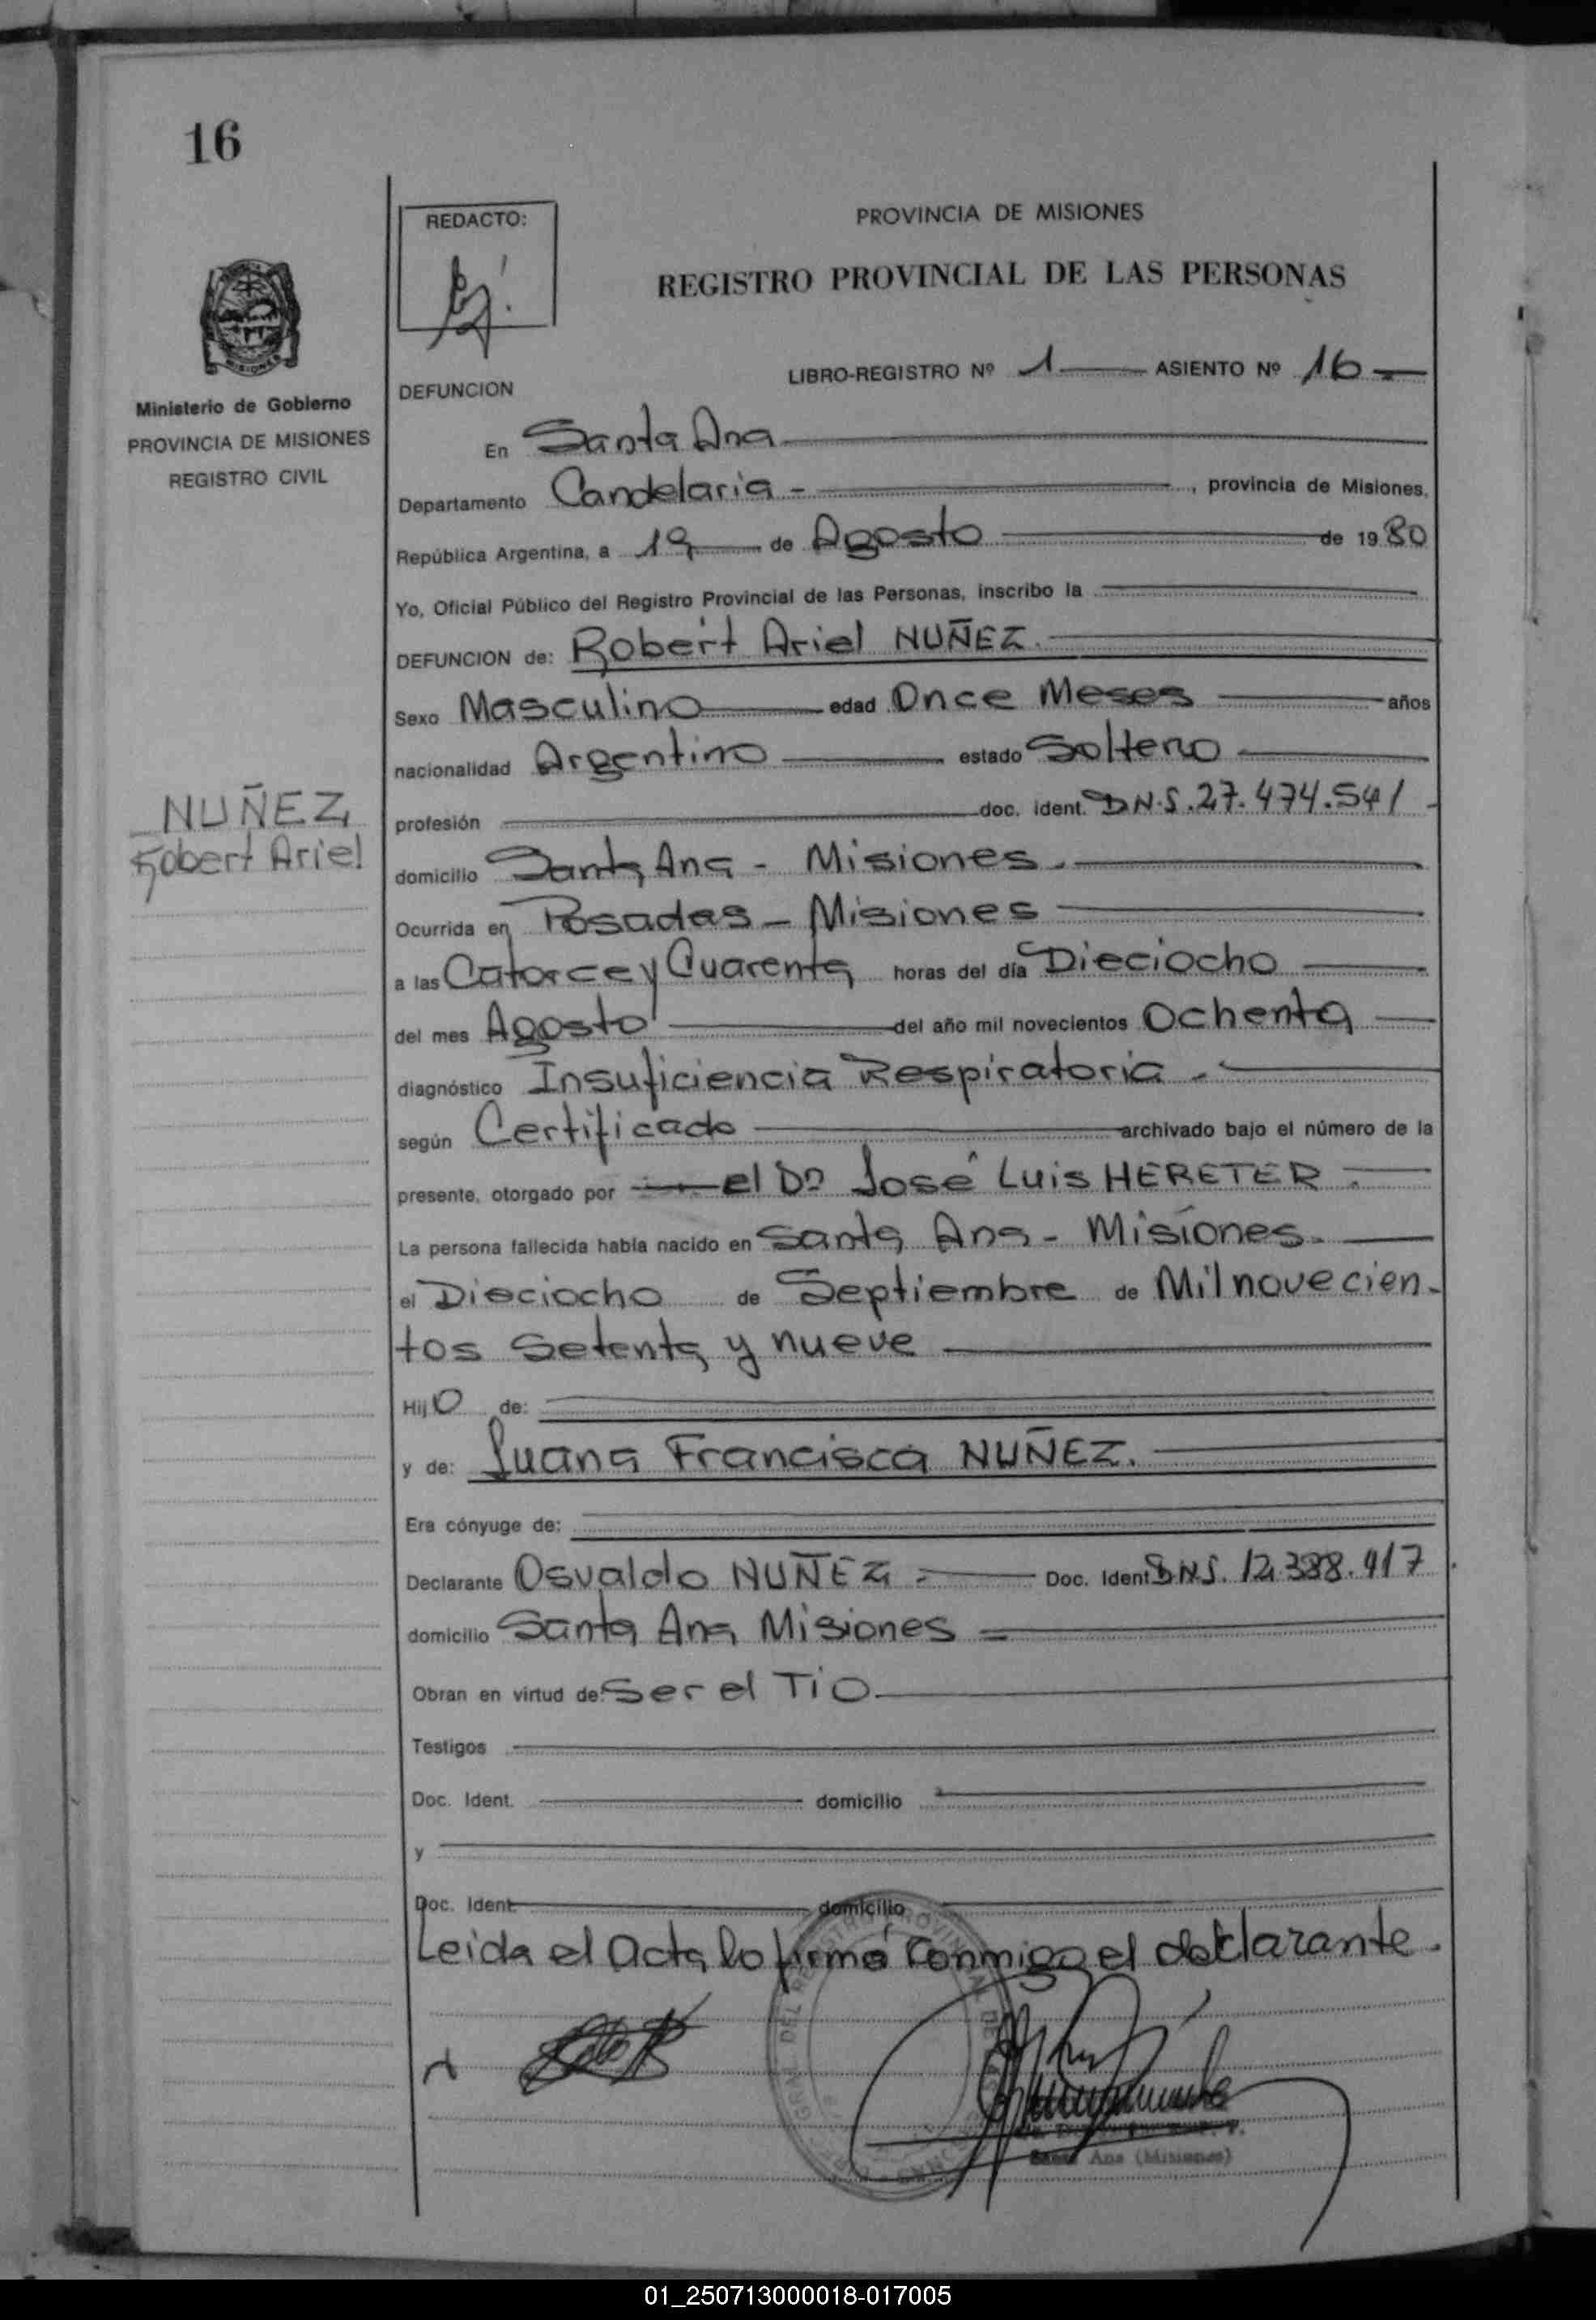 16
REDACTO:
PROVINCIA DE MISIONES
REGISTRO PROVINCIAL DE LAS PERSONAS
MISIONES
Ministerio de Gobierno
PROVINCIA DE MISIONES
REGISTRO CIVIL
LIBRO-REGISTRO Nº 1 ASIENTO Nº 16
DEFUNCION
En Santa Ana
Departamento Candelaria - , provincia de Misiones,
República Argentina, a 19 de Agosto de 1980
Yo, Oficial Público del Registro Provincial de las Personas, inscribo la
DEFUNCION de: Robert Ariel NUÑEZ.
Sexo Masculino edad Once Meses años
nacionalidad Argentino estado Soltero
NUÑEZ
Robert Ariel
profesión doc. ident. D.N.I. 27.474.541
domicilio Santa Ana - Misiones.
Ocurrida en Posadas - Misiones
a las Catorce y Cuarenta horas del día Dieciocho
del mes Agosto del año mil novecientos Ochenta
diagnóstico Insuficiencia Respiratoria.
según Certificado archivado bajo el número de la
presente, otorgado por el Dr José Luis HERETER.
La persona fallecida había nacido en Santa Ana - Misiones.
el Dieciocho de Septiembre de Mil novecien-
tos Setenta y nueve
Hijo de:
y de: Juana Francisca NUÑEZ.
Era cónyuge de:
Declarante Osvaldo NUÑEZ Doc. Ident D.N.I. 12.388.417
domicilio Santa Ana Misiones
Obran en virtud de: Ser el Tio
Testigos
Doc. Ident. domicilio
y
Doc. Ident. domicilio
Leida el Acta lo firmó conmigo el declarante.
Santa Ana (Misiones)
01_250713000018-017005